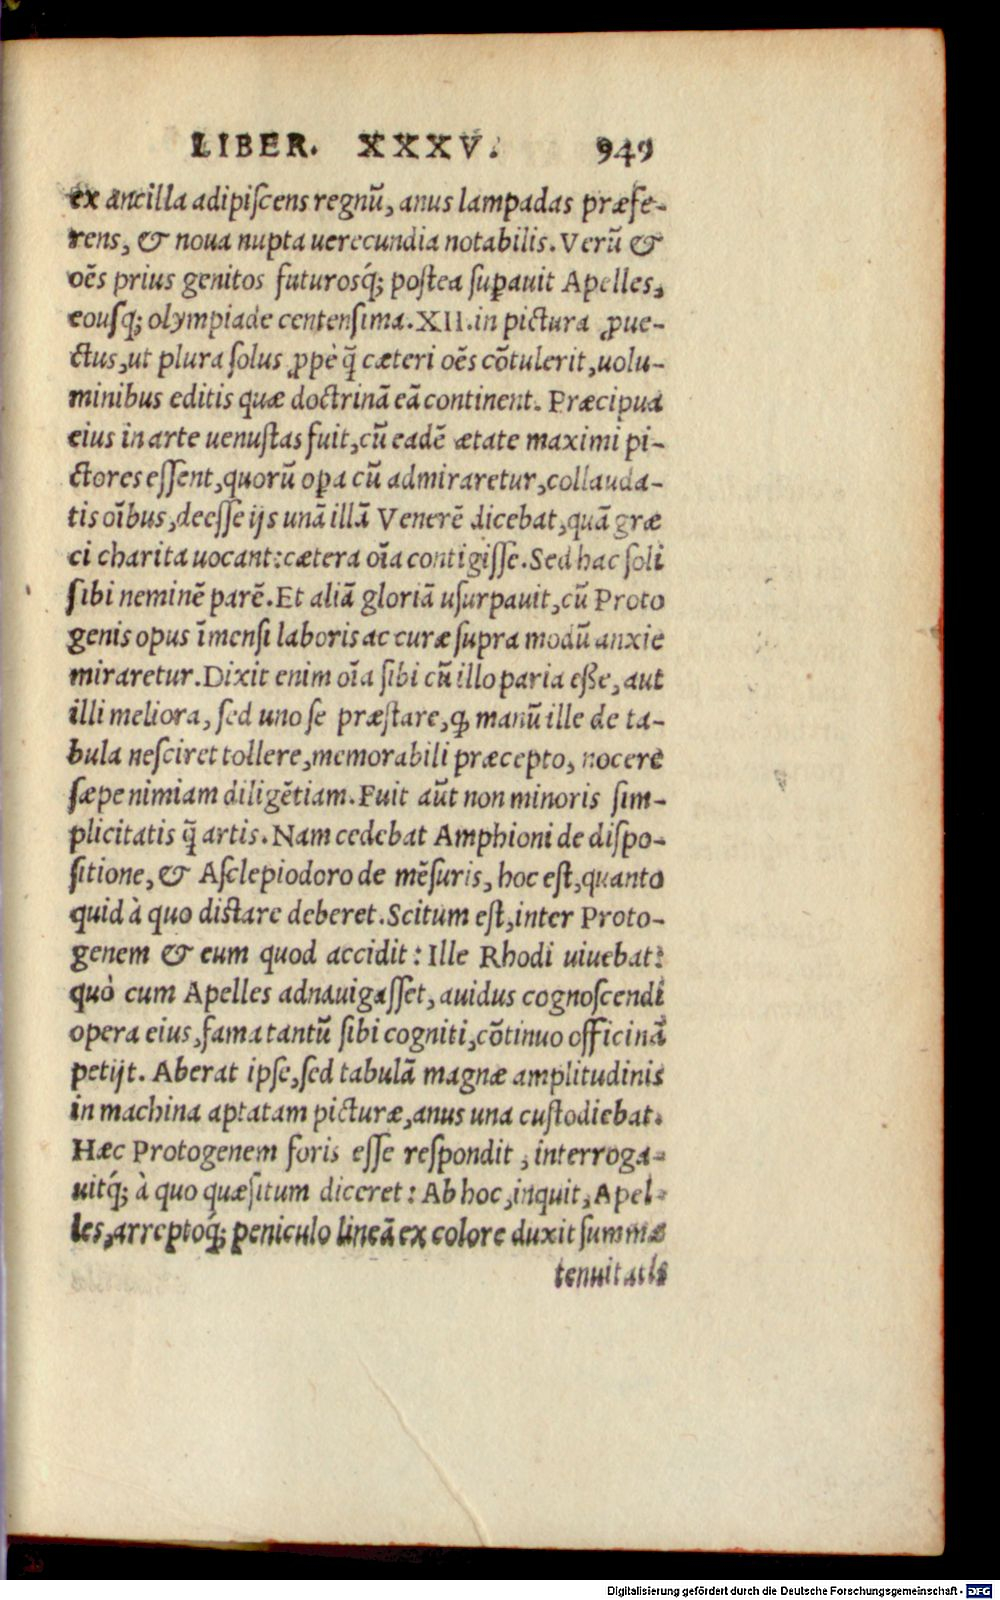 LIBER. XXXV. 949
ex ancilla adipiſcens regnū, anus lampadas præfe-
rens, & noua nupta uerecundia notabilis. Verū &
oēs prius genitos futurosq́; poſtea suꝑauit Apelles,
eouſq; olympiade centenſima. XII. in pictura ꝓue-
ctus, ut plura ſolus ꝓpè q̄ cæteri oēs cōtulerit, uolu-
minibus editis quæ doctrinā eā continent. Præcipua
eius in arte uenuſtas fuit, cū eadē ætate maximi pi-
ctores eſſent, quorū oꝑa cū admiraretur, collauda-
tis oībus, deeſſe ijs unā illā Venerē dicebat, quā græ
ci charita uocant: cætera oīa contigiſſe. Sed hac ſoli
ſibi neminē parē. Et aliā gloriā uſurpauit, cū Proto
genis opus īmenſi laboris ac curæ ſupra modū anxie
miraretur. Dixit enim oīa ſibi cū illo paria eſſe, aut
illi meliora, ſed uno ſe præſtare, ꝙ manū ille de ta-
bula neſciret tollere, memorabili præcepto, nocere
ſæpe nimiam diligētiam. Fuit aūt non minoris ſim-
plicitatis q̄ artis. Nam cedebat Amphioni de diſpo-
ſitione, & Aſclepiodoro de mēſuris, hoc eſt, quanto
quid à quo diſtare deberet. Scitum eſt, inter Proto-
genem & eum quod accidit: Ille Rhodi uiuebat:
quò cum Apelles adnauigaſſet, auidus cognoſcendi
opera eius, fama tantū ſibi cogniti, cōtinuo officinā
petijt. Aberat ipſe, ſed tabulā magnæ amplitudinis
in machina aptatam picturæ, anus una cuſtodiebat.
Hæc Protogenem foris eſſe reſpondit, interroga-
uitq́; à quo quæſitum diceret: Ab hoc, inquit, Apel-
les, arreptoq́; peniculo lineā ex colore duxit ſummæ
tenuitatis
Digitalisierung gefördert durch die Deutsche Forschungsgemeinschaft - DFG